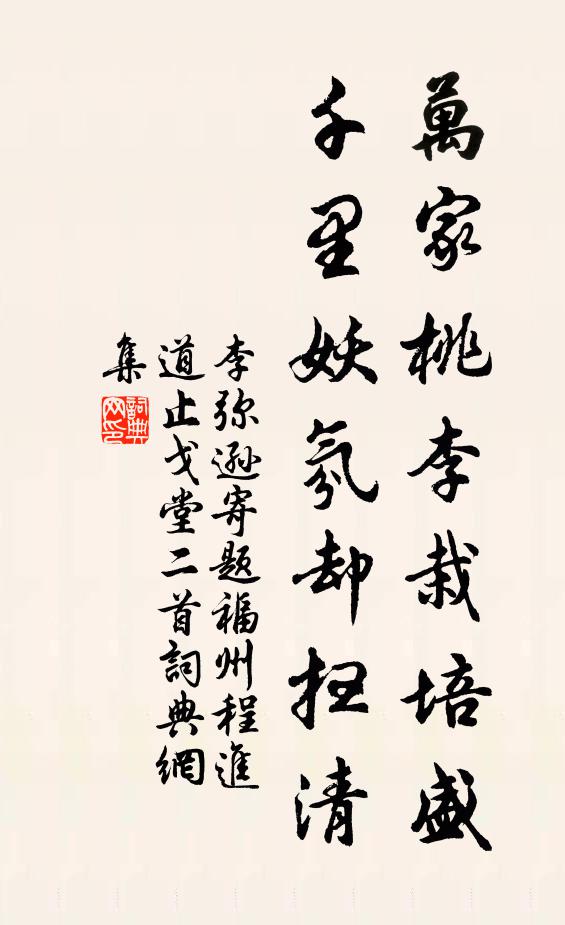 萬家桃李栽培盛
千里妖氛却扫清
李弥遜寄题福州程進
道止戈堂二首詞典網
集
詞典
网印